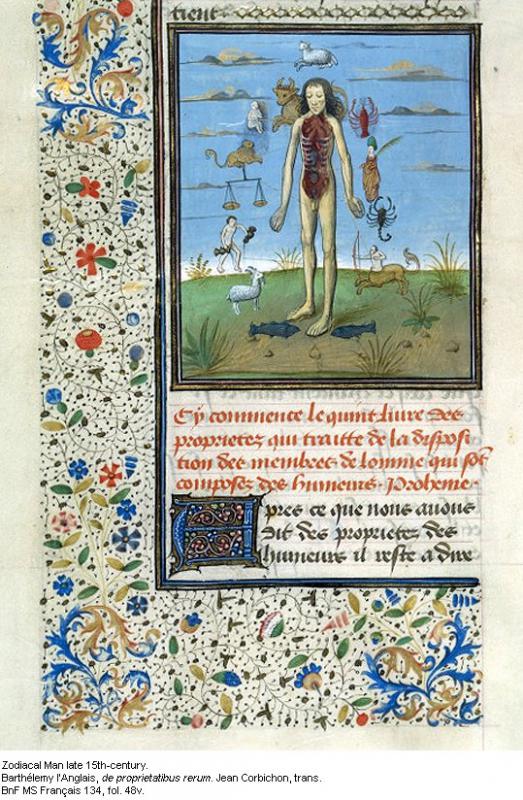 tient
Cy commence le quint livre des
proprietez qui traitte de la disposi
tion des membres de lomme qui sōt
composez des humeurs. Proheme.
Apres ce que nous auons
dit des proprietez des
humeurs il reste a dire
Zodiacal Man late 15th-century.
Barthélemy l'Anglais, de proprietatibus rerum. Jean Corbichon, trans.
BnF MS Français 134, fol. 48v.